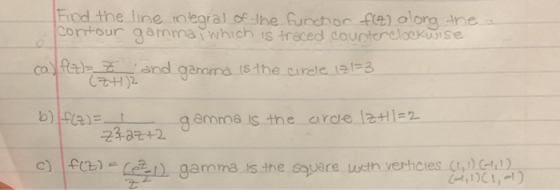 Find the line integral of the function f(z) along the
contour gamma, which is traced counterclockwise
(a) f(z)= z/(z+1)² and gamma is the circle |z|=3
b) f(z)= 1/z²+2z+2 gamma is the circle |z+1|=2
c) f(z) = (e^z-1)/z² gamma is the square with verticies (1,1)(-1,1)
(-1,1)(1,-1)